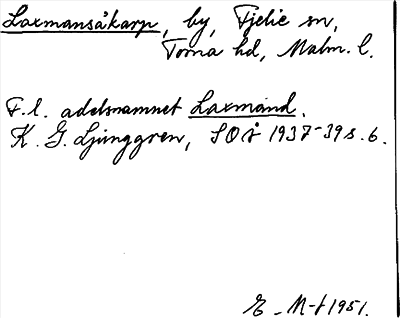 Laxmansåkarp, by, Fjelie sn,
Torna hd, Malm. l.
F.l. adelsnamnet Laxmand.
K. G. Ljunggren, SOÅ 1937-39 s. 6.
E. M-f 1951.